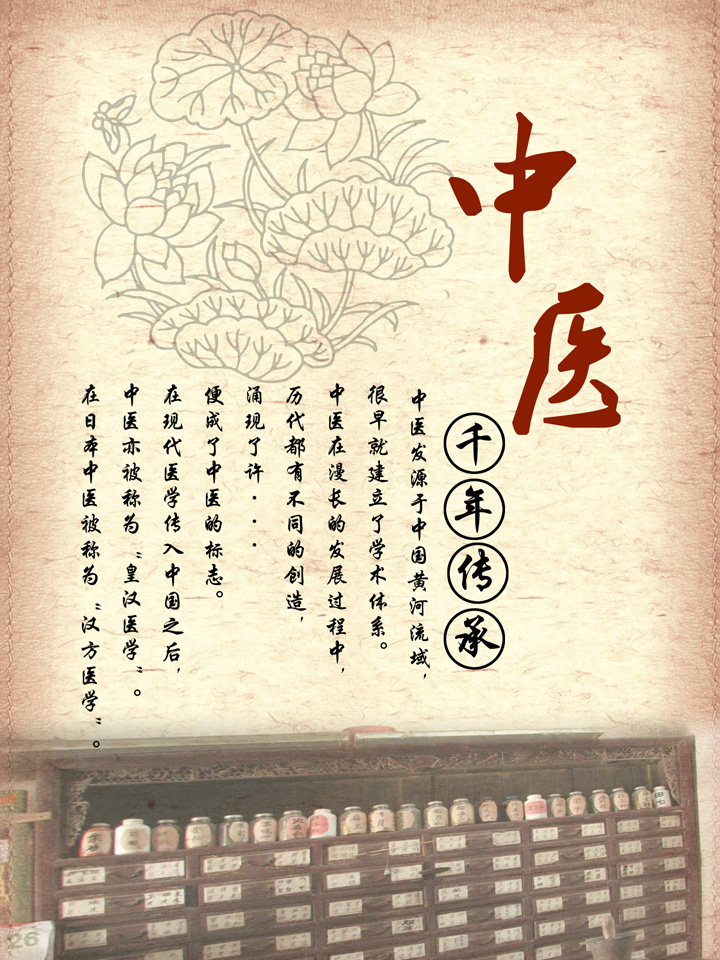 中医
千年传承
中医发源于中国黄河流域，
很早就建立了学术体系。
中医在漫长的发展过程中，
历代都有不同的创造，
涌现了许・・・
便成了中医的标志。
在现代医学传入中国之后，
中医亦被称为“皇汉医学”。
在日本中医被称为“汉方医学”。
田七
26